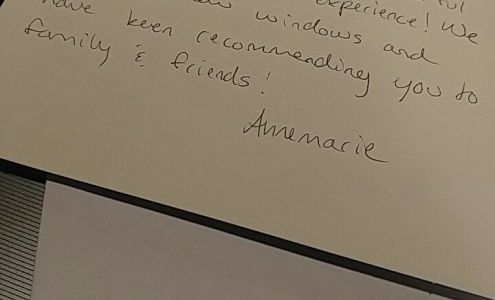 experience! We
windows and
have been recommending you to
family & friends!
Annemarie